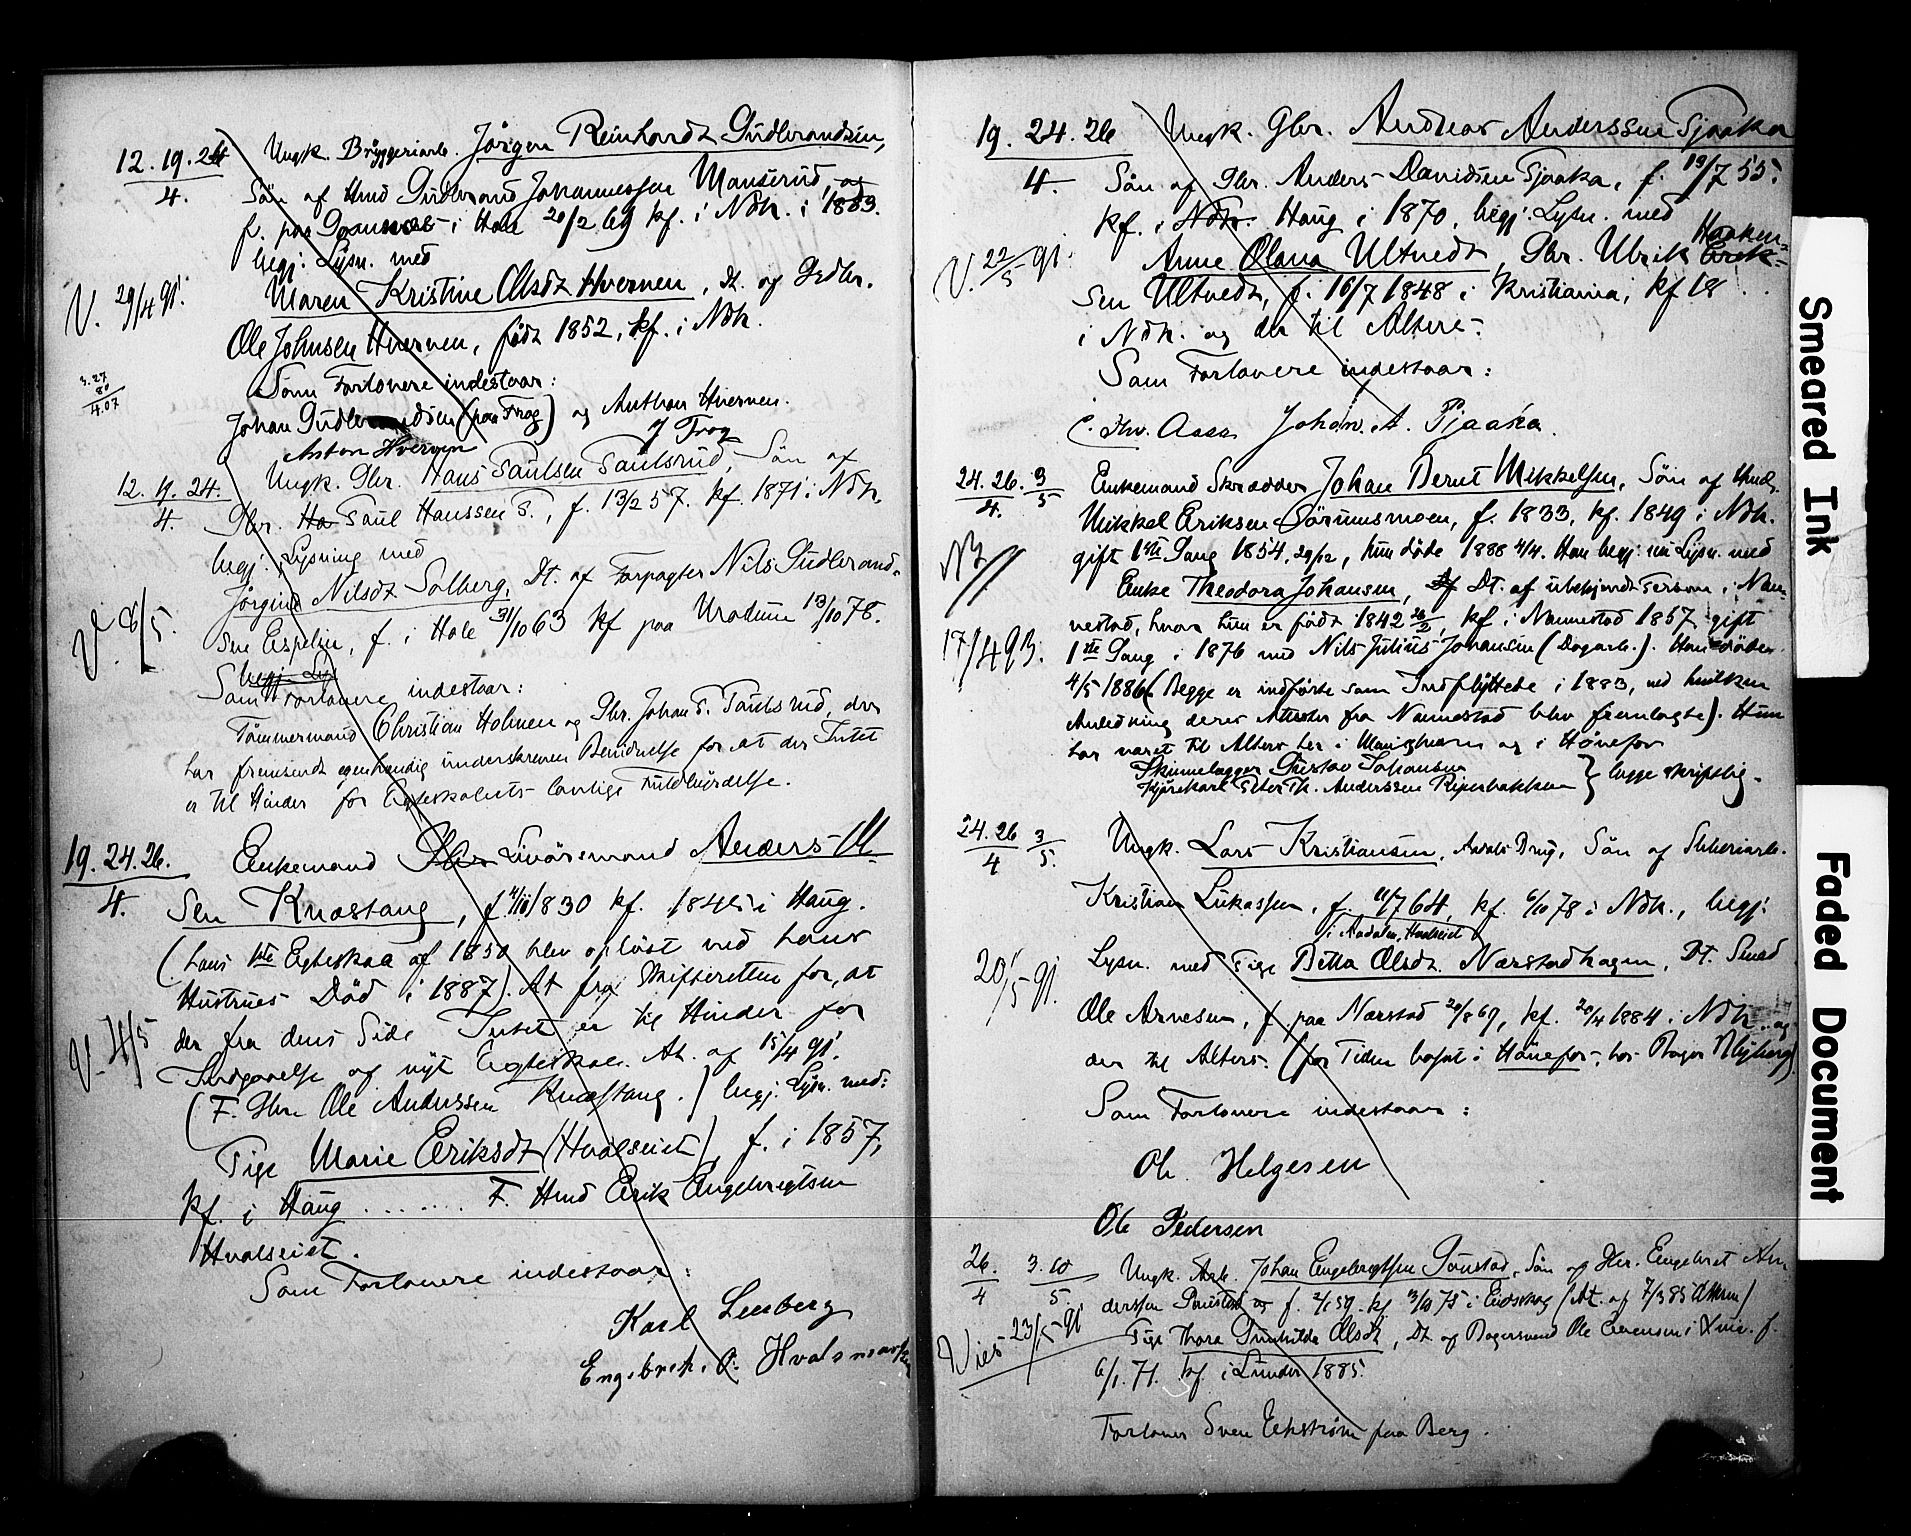 12. 19. 24
4.
Ungk. Bryggeriarb. Jörgen Reinhardt Gudbrandsen,
Sön af Hmd Gudbrand Johannessen Mauserud, og
f. paa i Hole 20/2 69 kf. i Ndh. i 1883.
begj. Lysn. med
V. 29/4 91.
Maren Kristine Olsdt Hverven, Dt. og Gdbr.
Ole Johnsen Hverven, födt 1852, kf. i Ndh.
Som Forlovere indestaar:
Johan Gudbrandsen (paa Frog) og Anthon Hverven.
Anton Hverven
12. 19. 24.
4.
Ungk. Gbr. Hans Paulsen Paulsrud, Sön af
Gbr. Ha Paul Hanssen P., f. 13/2 57. kf. 1871 i Ndh.
begj. Lysning med
V. 8/5.
Jörgine Nilsdt Solberg, Dt. af Forpagter Nils Gudbrand-
sen Espelin, f. i Hole 31/10 63 kf paa Viadum 13/10 78.
begj. Lys
Som Forlovere indestaar:
Tömmermand Christian Holmen og Gbr. Johan P. Paulsrud, der
har fremsendt egenhændig underskreven Bevidnelse for at der Intet
er til Hinder for Egteskabets lovlige Fuldbyrdelse.
19. 24. 26.
4.
Enkemand Gbr Livörsmand Anders M
sen Knæstang, f. 4/10 1830 kf. 1845 i Haug.
(hans 1ste Egteskab af 1850 blev oplöst ved hans
Hustrues Död i 1887). At fra Skifteretten for, at
V. 14/5
der fra dens Side Intet er til Hinder for
Indgaaelse af nyt Egteskab. At. af 15/4 91.
(F. Gbr. Ole Anderssen Knæstang.) begj. Lysn. med:
Pige Marie Eriksdt (Hvalseiet), f. i 1857,
kf. i Haug ........ F. Hmd Erik Engebrigtsen
Hvalseiet.
Som Forlovere indestaar:
Karl Lerberg
19. 24. 26
4.
Ungk. Gbr. Andreas Anderssen Tjaaka
Sön af Gbr. Anders Davidsen Tjaaka, f. 19/7 55.
kf. i Ndh. Haug i 1870, begj. Lysn. med
V. 22/5 91.
Anne Olava Ultvedt, Gbr. Ulrik Erik- Haaken-
sen Ultvedt, f. 16/7 1848 i Kristiania, kf 18 ..
i Ndh. og der til Alters.
Som Forlovere indestaar:
Johan. A. Tjaaka.
24. 26. 3
4. 5
Enkemand Skrædder Johan Bernt Mikkelsen, Sön af Hmd.
Mikkel Eriksen Sörumsmoen, f. 1833, kf. 1849 i Ndh.
NB
gift 1ste Gang 1854, 29/12, hun döde 1888 4/4. Han begj. nu Lysn. med
Enke Theodora Johansen, Dt. af ubekjendt Person i Nan-
nestad, hvor hun er födt 1842 26/2, kf i Nannestad 1857, gift
17/4 93.
1ste Gang i 1876 med Nils Julius Johansen (Dagarb.). Han döde
4/5 1886 (Begge er indförte som Indflyttede i 1883, ved hvilken
Anledning deres Attester fra Nannestad blev fremlagte). Hun
har været til Alters her i Menigheden og i Hönefos
Skinnelægger Gustav Johansen
Kjörekarl Peter Th. Anderssen Riperbakken } begge skriftlig.
24. 26 3
4 5.
Ungk. Lars Kristiansen, Aadals Brug, Sön af Sliberiarb.
Kristian Lukassen, f. 11/7 64, kf. 6/10 78 i Ndh., begj.
i Aadalen, Hvalseiet
20/5 91.
Lysn. med Pige Betta Olsdt. Nærstadhagen, Dt. Smed
Ole Arnesen, f paa Nærstad 20/8 69, kf. 20/4 1884 i Ndh. og
der til Alters. (for Tiden bosat i Hönefos, hos Bager Nyberg)
Som Forlovere indestaar:
Ole Helgesen
Ole Pedersen
26. 3. 10
4 5.
Ungk. Arb. Johan Engebrigtsen Gunstad, Sön af Gbr. Engebret An
derssen f. 2/1 59. kf. 3/10 75 i Eidskog (At. af 7/3 85
Viet 23/5 91
Pige Thora Gunhilda Olsdt, Dt af Bagersvend Ole f.
6/1. 71. kf. i Lunder 1885.
Forlover Sven Ekström paa Berg.
Smeared Ink
Faded Document